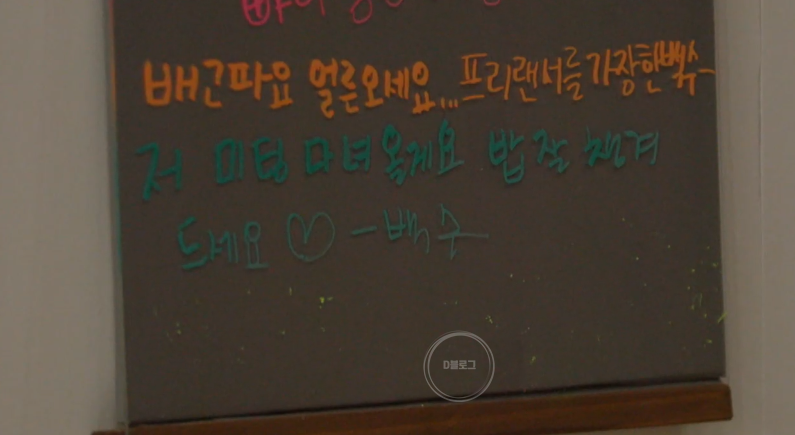 배고파요 얼른오세요... 프리랜서를 가장한백수
저 미팅 다녀올게요 밥 잘 챙겨
드세요 ♡ -백수
D블로그